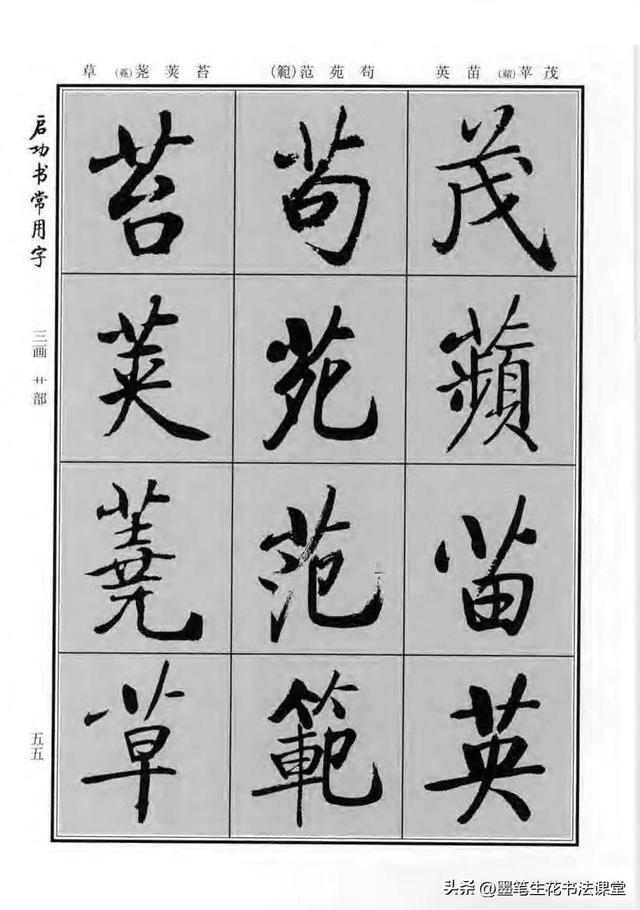 茂苹(蘋)苗英
苟苑范(範)
苔荚荛(蕘)草
茂蘋苗英
苟苑范範
苔荚蕘草
启功书常用字
三画 艹部
五五
头条 @墨笔生花书法课堂